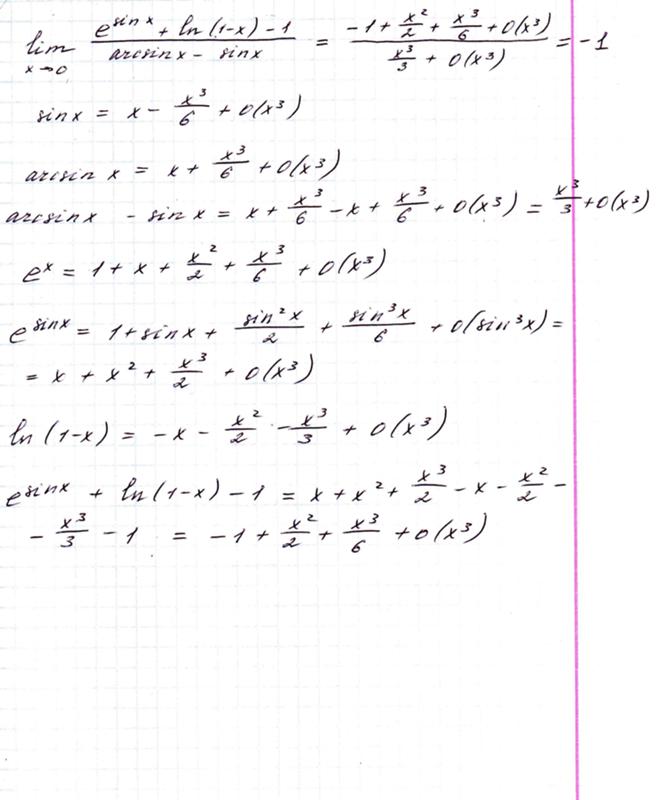 lim x→0 (e^sin x + ln(1-x) - 1)/(arcsin x - sin x) = (-1 + x²/2 + x³/6 + o(x³))/(x³/3 + o(x³)) = -1
sin x = x - x³/6 + o(x³)
arcsin x = x + x³/6 + o(x³)
arcsin x - sin x = x + x³/6 - x + x³/6 + o(x³) = x³/3 + o(x³)
e^x = 1 + x + x²/2 + x³/6 + o(x³)
e^sin x = 1 + sin x + sin²x/2 + sin³x/6 + o(sin³x) =
= x + x² + x³/2 + o(x³)
ln(1-x) = -x - x²/2 - x³/3 + o(x³)
e^sin x + ln(1-x) - 1 = x + x² + x³/2 - x - x²/2 -
- x³/3 - 1 = -1 + x²/2 + x³/6 + o(x³)